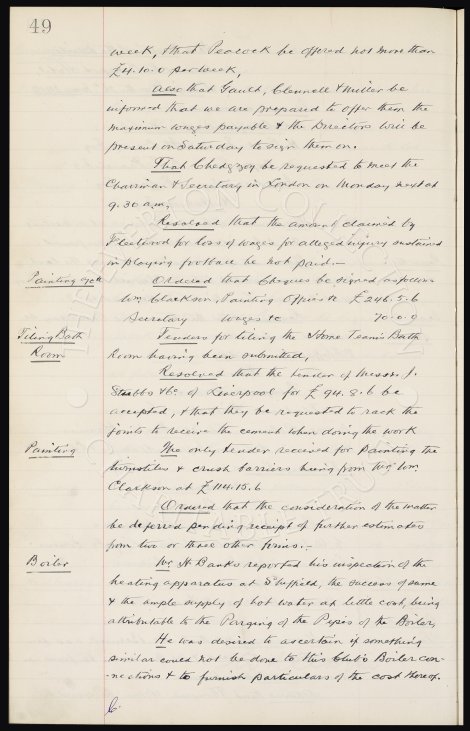 49
week, & that Peacock be offered not more than
£4.10.0 per week,
Also that Gault, Clennell & Miller be
informed that we are prepared to offer them the
maximum wages payable & the Directors will be
present on Saturday to sign them on.
That Chedgzoy be requested to meet the
Chairman & Secretary in London on Monday next at
9.30 a.m.
Resolved that the amount claimed by
Fleetwood for loss of wages for alleged injury sustained
in playing football be not paid.—
Painting Ordered that Cheques be signed as follows
Wm Clarkson, Painting Offices &c £246.5.6
Secretary Wages &c 70.0.0
Tiling Bath Tenders for tiling the Home Team's Bath
Room Room having been submitted,
Resolved that the tender of Messrs. J.
Stubbs & Co of Liverpool for £94.8.6 be
accepted, & that they be requested to rack the
joints to receive the cement when doing the work
Painting The only tender received for painting the
turnstiles & crush barriers being from Wm
Clarkson at £114.15.6
Ordered that the consideration of the matter
be deferred pending receipt of further estimates
from two or three other firms.—
Boiler Mr H Banks reported his inspection of the
heating apparatus at Sheffield, the success of same
& the ample supply of hot water at little cost, being
attributable to the Parging of the Pipes of the Boiler,
He was desired to ascertain if something
similar could not be done to this Club's Boiler con-
-nections & to furnish particulars of the cost thereof.